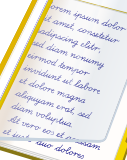 orem ipsum dolor
it amet, consetetur
adipscing elitr,
sed diam nonumy
eirmod tempor
invidunt ut labore
et dolore magna
aliquyam erat, sed
diam voluptua.
At vero eos et accusam
et justo duo dolores